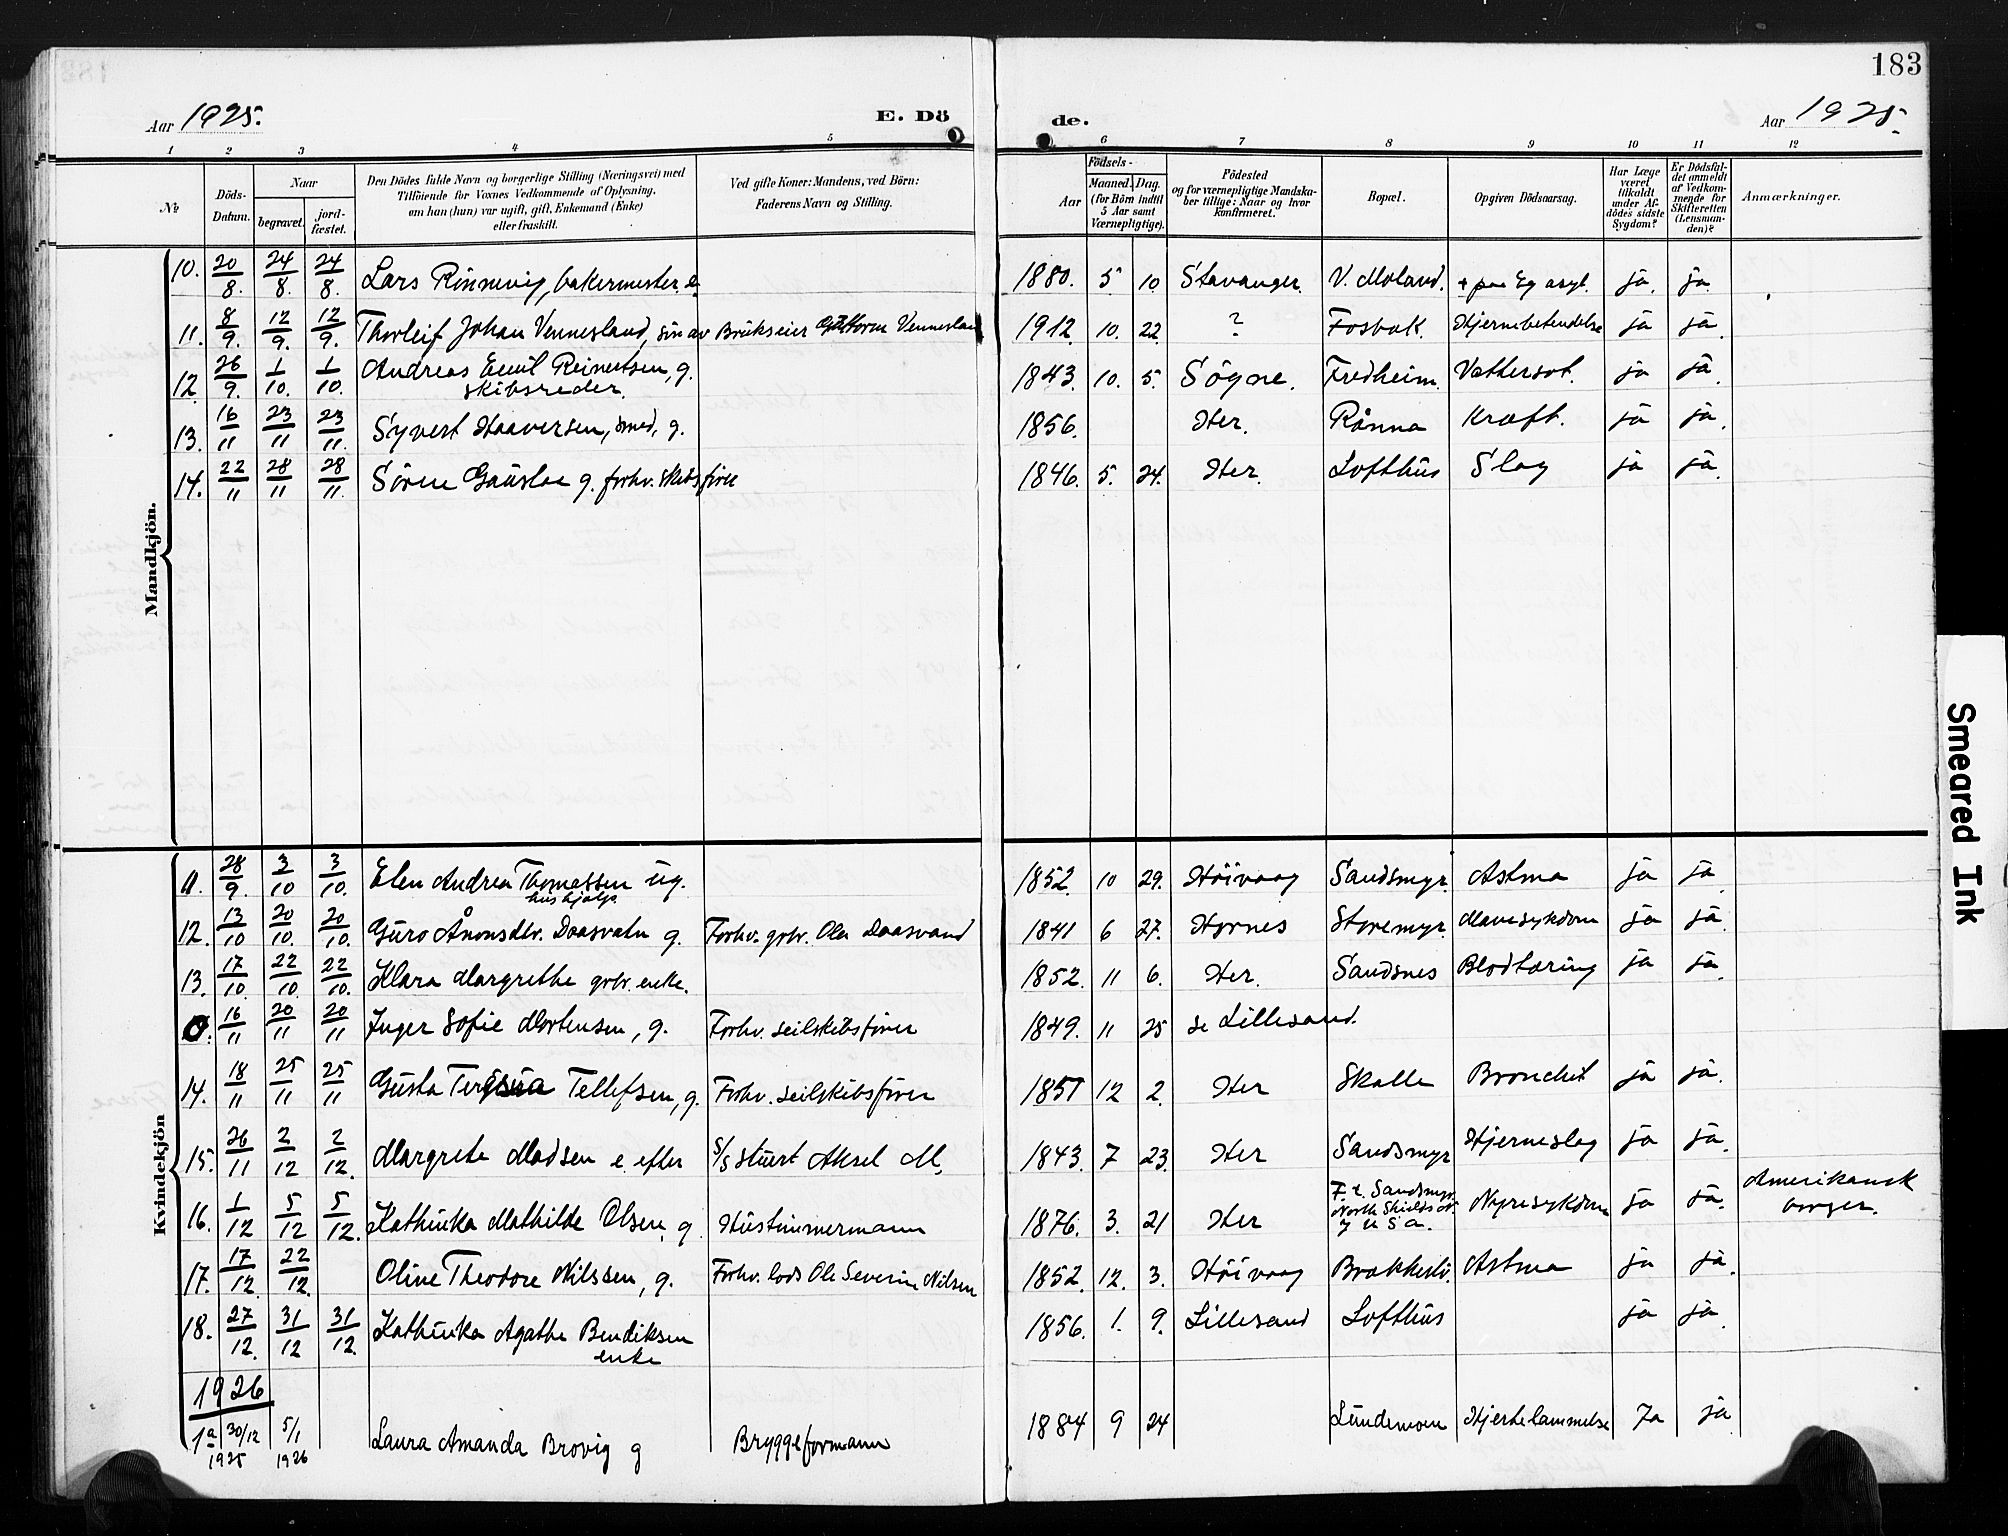 183
Aar 1925.
E. Dö
de.
Aar 1925.
1 2 3 4 5 6 7 8 9 10 11 12
№
Döds-Datum.
Naar
begravet.
jord-fæstet.
Den Dödes fulde Navn og borgerlige Stilling (Næringsvei) med
Tilföiende for Voxnes Vedkommende af Oplysning,
om han (hun) var ugift, gift, Enkemand (Enke)
eller fraskilt.
Ved gifte Koner: Mandens, ved Börn:
Faderens Navn og Stilling.
Födsels-
Aar
Maaned. Dag.
(for Börn indtil
5 Aar samt
Værnepligtige).
Födested
og for værnepligtige Mandska-
ber tillige: Naar og hvor
konfirmeret.
Bopæl.
Opgiven Dödsaarsag.
Har Læge
været
tilkaldt
under Af-
dödes sidste
Sygdom?
Er Dödsfal-
det anmeldt
af Vedkom-
mende for
Skifteretten
(Lensman-
den)?
Anmærkninger.
Mandkjön.
10. 20/8. 24/8. 24/8. Lars Rönnevig, bakermester. e. 1880. 5 10 Stavanger. V. Moland. + paa Eg asyl. ja. ja
11. 8/9. 12/9. 12/9. Thorleif Johan Vennesland, sön av Brukseier Guttorm Vennesland 1912. 10. 22. ? Fosbæk. Hjernebetendelse ja ja.
12. 26/9. 1/10. 1/10. Andreas Emil Reinertsen, g. 1843. 10. 5. Søgne. Fredheim. Vattersot. ja ja.
skibsreder.
13. 16/11 23/11 23/11. Syvert Haaversen, smed, g. 1856. Her. Rønna Kræft. ja ja.
14. 22/11 28/11 28/11. Sören Gauslaa g. forhv. skibsfører 1846. 5. 24. Her Lofthus Slag ja ja.
Kvindekjön
11. 28/9. 3/10 3/10. Elen Andrea Thomassen ug. 1852. 10 29. Høivaag Sandsmyr. Astma ja ja.
hushjælp
12. 13/10 20/10. 20/10. Guro Ånonsdtr. Daasvatn g. Forhv. gbr. Ola Daasvand 1841 6 27. Hornes Storemyr. Mavesykdom ja ja.
13. 17/10. 22/10. 22/10. Klara Margrethe gbr. enke. 1852. 11 6. Her. Sandsnes Blodtæring ja ja.
0. 16/11 20/11 20/11 Inger Sofie Mortensen, g. Forhv. seilskibsfører 1849. 11 25 se Lillesand.
14. 18/11 25/11 25/11 Gusta Tellefsen, g. Forhv. seilskibsfører 1851 12 2. Her Skalle Bronchit ja ja.
15. 26/11 2/12 2/12. Margrete Madsen e. efter S/S stuert Aksel M. 1843. 7 23. Her Sandsmyr Hjerneslag ja ja.
16. 1/12 5/12 5/12. Kathinka Mathilde Olsen, g Hustimmermann 1876. 3. 21 Her F. t. Sandsmyr Nyresykdom ja ja. Amerikansk
North Shields N. borger.
Y U S A.
17. 17/12. 22/12. Olive Theodore Nilssen, g. Forhv. lods Ole Severin Nilsen 1852. 12. 3. Høivaag Brækkestø. Astma ja ja.
18. 27/12. 31/12 31/12. Kathinka Agathe Bendiksen 1856. 1. 9. Lillesand Lofthus ja ja.
enke
1926
1a 30/12 5/1 Laura Amanda Brovig g Bryggeformann 1884 9 24 Lundemoen Hjertelammelse Ja ja
1925 1926
Smeared Ink